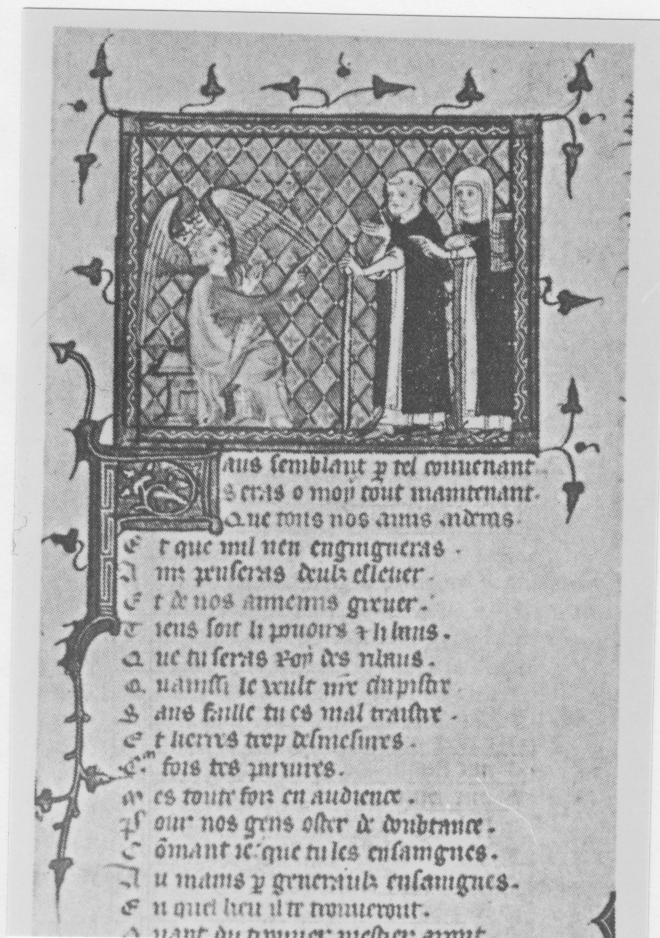 Faus semblant ꝑ tel couuenant
Seras o moy tout maintenant.
Que tous nos amis aideras.
Et que nul nen engingneras.
Ains penseras deulz esleuer.
Et de nos annemis greuer.
Tiens soit li pouoirs ⁊ li baus.
Que tu seras roy des ribaus.
Quainssi le veult nr̄e chapistre
Sans faille tu es mal traistre.
Et lierres trop desmesures.
C.ᵐ fois tes pariures.
Mes toute foiz en audience.
Pour nos gens oster de doubtance.
Cōmant ie que tu les ensaingnes.
Au mains ꝑ generaulz ensaingnes.
En quel lieu il te trouueront.